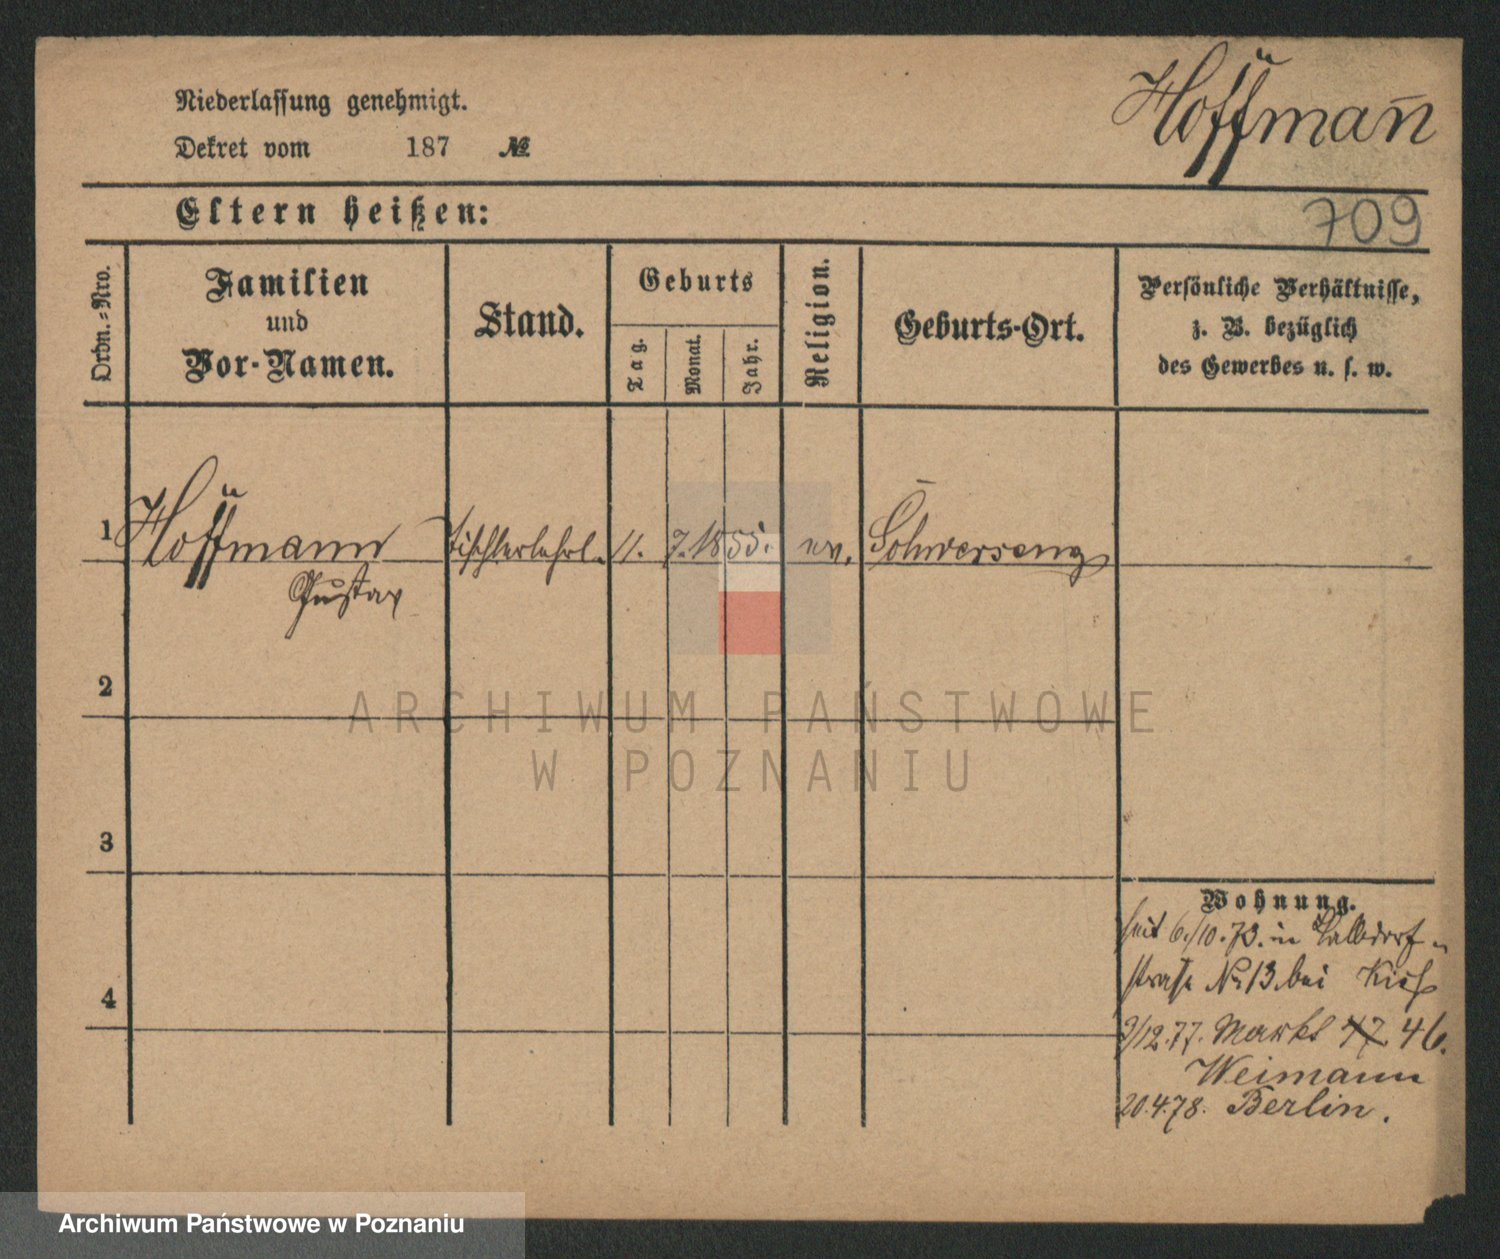 Hoffmañ
Niederlassung genehmigt.
Dekret vom 187 №
709
Eltern heißen:
Ordn.-Nro.
Familien
und
Vor-Namen.
Stand.
Geburts
Tag.
Monat.
Jahr.
Religion.
Geburts-Ort.
Persönliche Verhältnisse,
z. B. bezüglich
des Gewerbes u. s. w.
1 Hoffmann Tischlerlehrl. 11. 7. 1855. ev. Schwersenz
Gustav
2
3
4
Wohnung.
seit 6./10.73. in
straße No 13 bei
9/12.77. Markt 47 46.
Weimann
20.4.78. Berlin.
ARCHIWUM PAŃSTWOWE
W POZNANIU
Archiwum Państwowe w Poznaniu